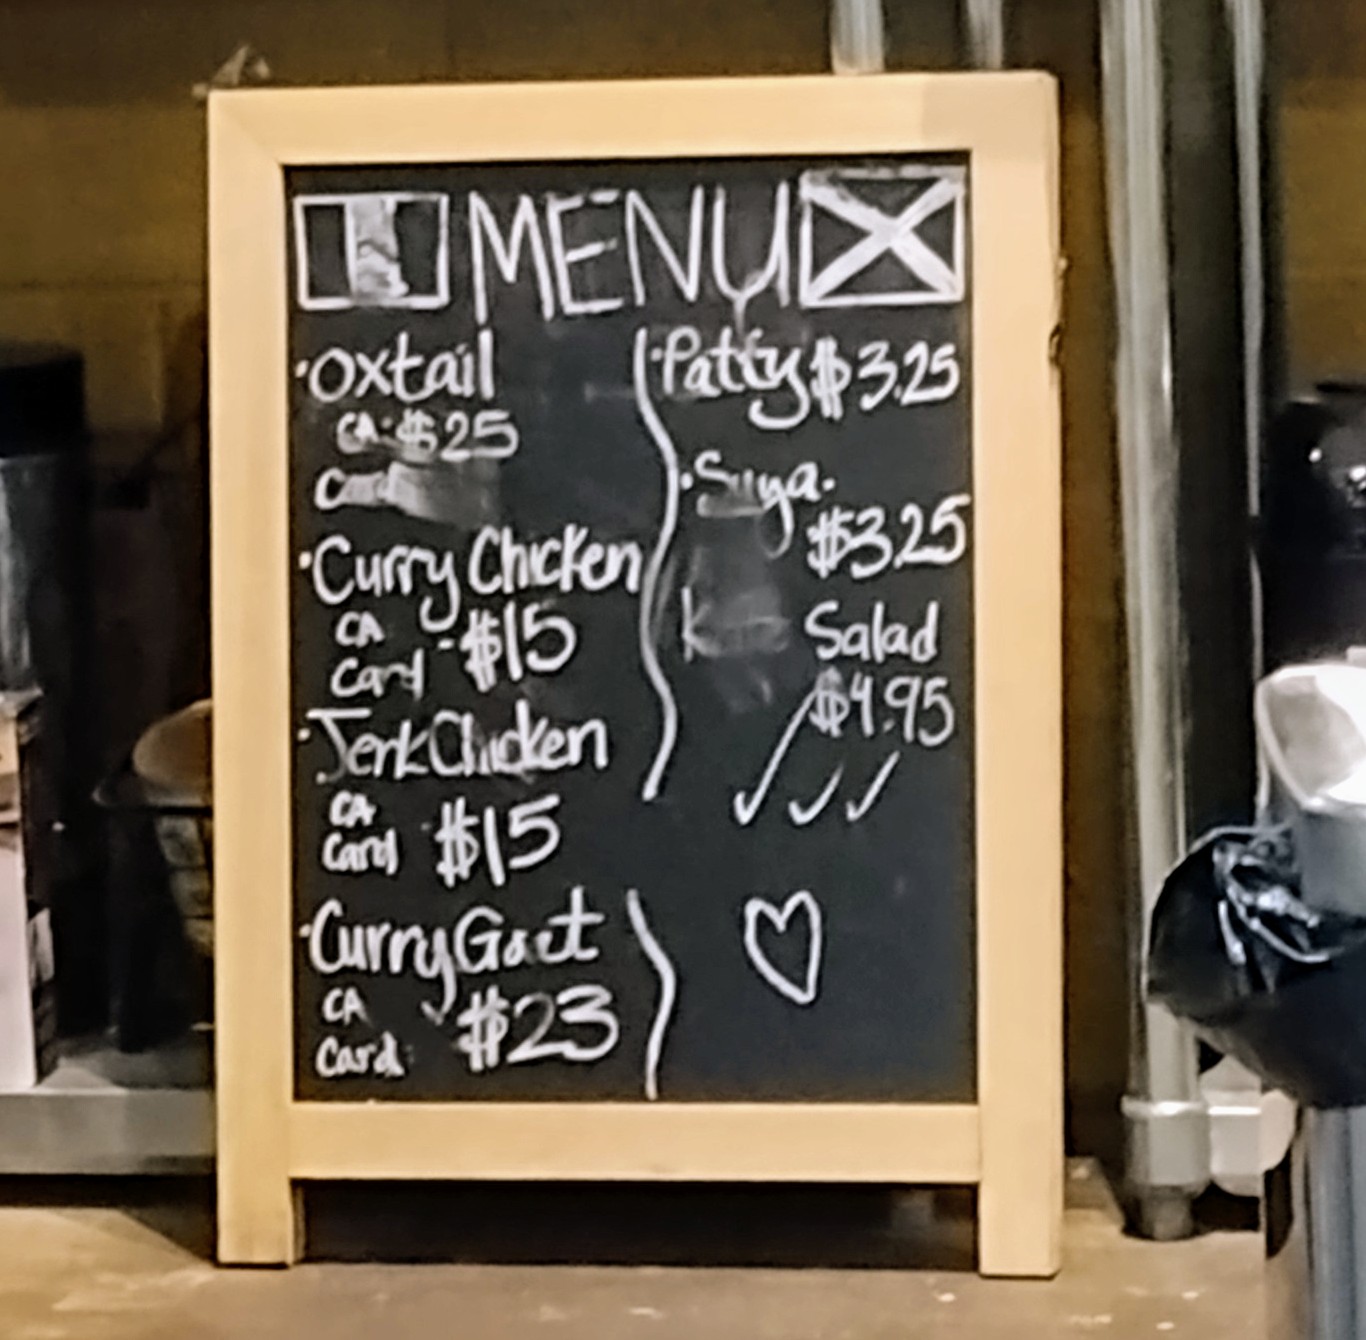 MENU
·Oxtail
CA·$25
Card
·Curry Chicken
CA
Card -$15
·Jerk Chicken
CA
Card $15
·Curry Goat
CA
Card $23
·Patty $3.25
·Suya·
$3.25
Salad
$4.95